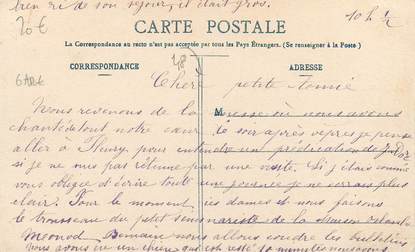 bien ri de son séjour, il était gros.
10 h ½
20 €
CARTE POSTALE
La Correspondance au recto n'est pas acceptée par tous les Pays Étrangers. (Se renseigner à la Poste)
CORRESPONDANCE
ADRESSE
48
GARE
Chère petite Amie
Nous revenons de la Messe où nous avons
chanté de tout notre cœur. Ce soir après vêpres je pense
aller à Fleury pour entendre un prédication de
si je ne suis pas retenue par une visite. Si j'étais comme
vous obligée d'écrire toute une journée je ne verrais plus
clair. Pour le moment, ces dames et nous faisons
le trousseau du petit
Demain nous allons coudre les
Nous avons eu un chien qui est resté 10 minutes